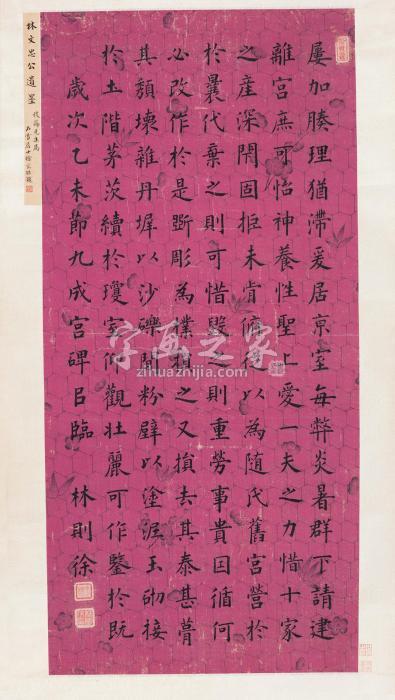 林文忠公遺墨
屢加腠理猶滯爰居京室每弊炎暑群下請建
離宮庶可怡神養性聖上愛一夫之力惜十家
之產深閇固拒未肯俯從以為隨氏舊宮營於
於曩代棄之則可惜毀之則重勞事貴因循何
必改作於是斲彫為樸損之又損去其泰甚葺
其頹壞雜丹墀以沙礫間粉壁以塗泥玉砌接
於土階茅茨續於瓊室仰觀壯麗可作鑒於既
歲次乙未節九成宮碑㠯臨 林則徐
字画之家
zihuazhijia.com